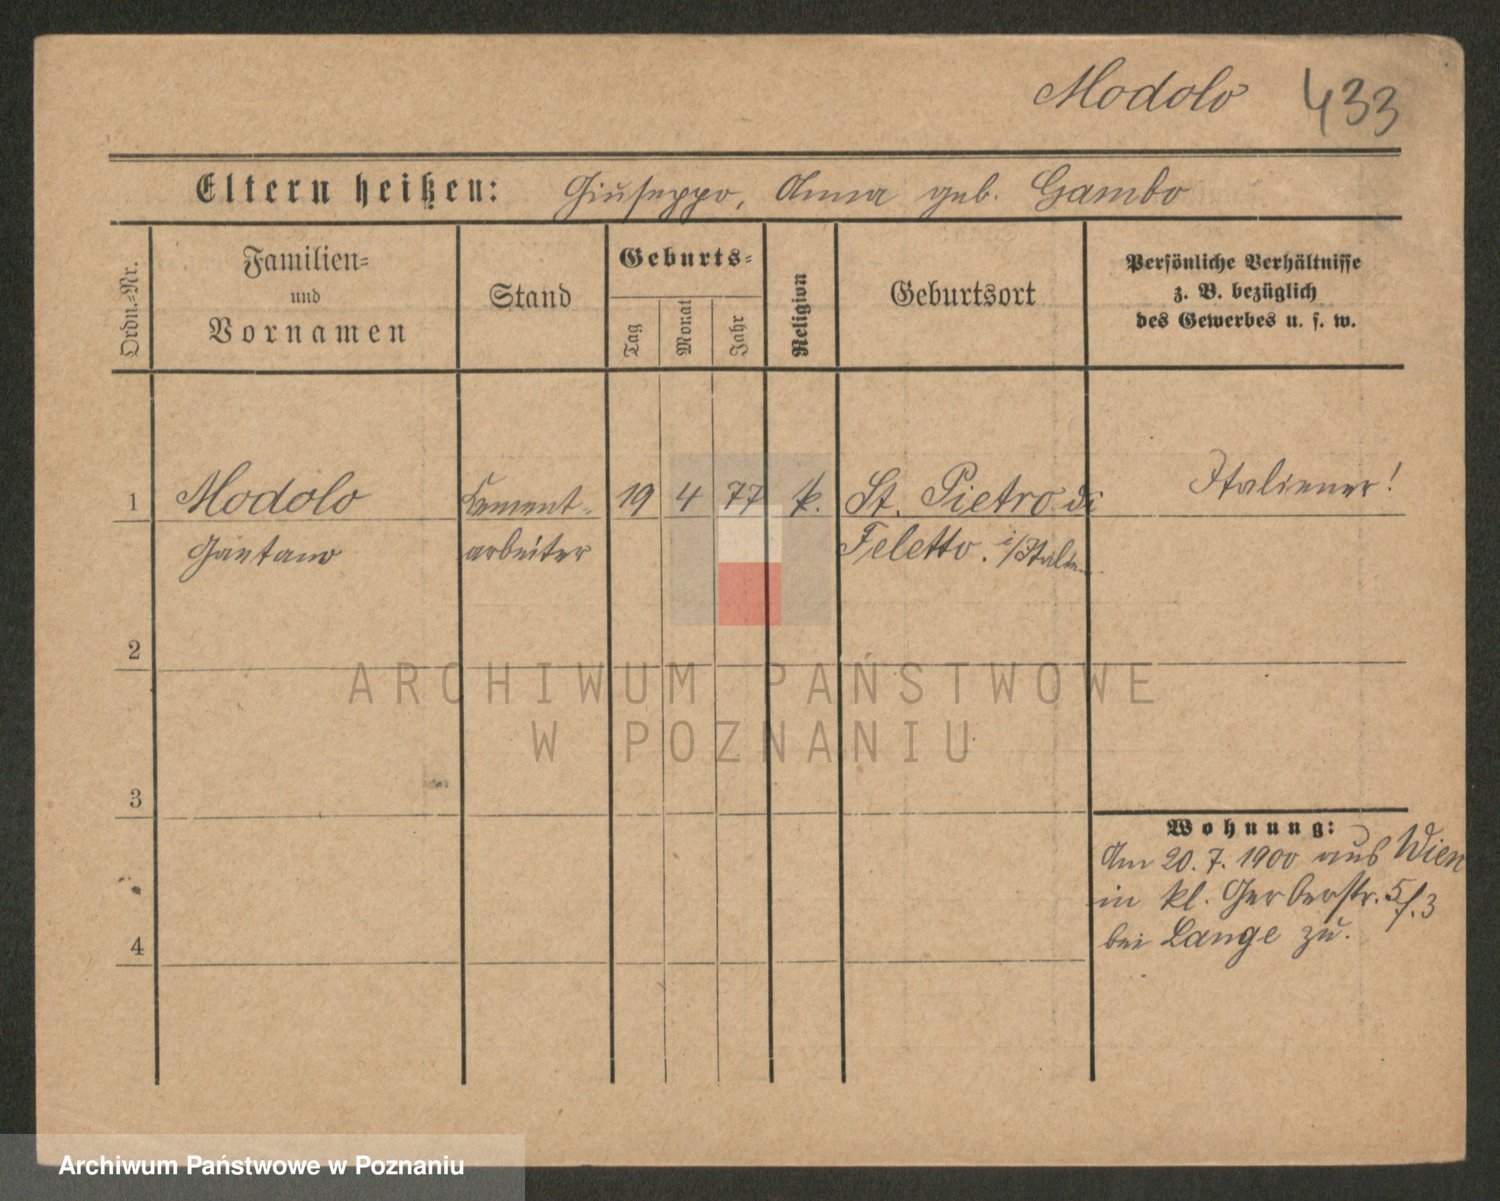 Modolo 433
Eltern heißen: Giuseppo, Anna geb. Gambo
Ordn.=Nr.
Familien=
und
Vornamen
Stand
Geburts=
Tag
Monat
Jahr
Religion
Geburtsort
Persönliche Verhältnisse
z. B. bezüglich
des Gewerbes u. s. w.
1 Modolo Cement- 19 4 77 k. St. Pietro di Italiener!
Gaetano arbeiter Feletto. i/Italien.
2
3
4
Wohnung:
Am 20.7.1900 aus Wien
in kl. Gerberstr. 5/f.3
bei Lange zu.
ARCHIWUM PAŃSTWOWE
W POZNANIU
Archiwum Państwowe w Poznaniu